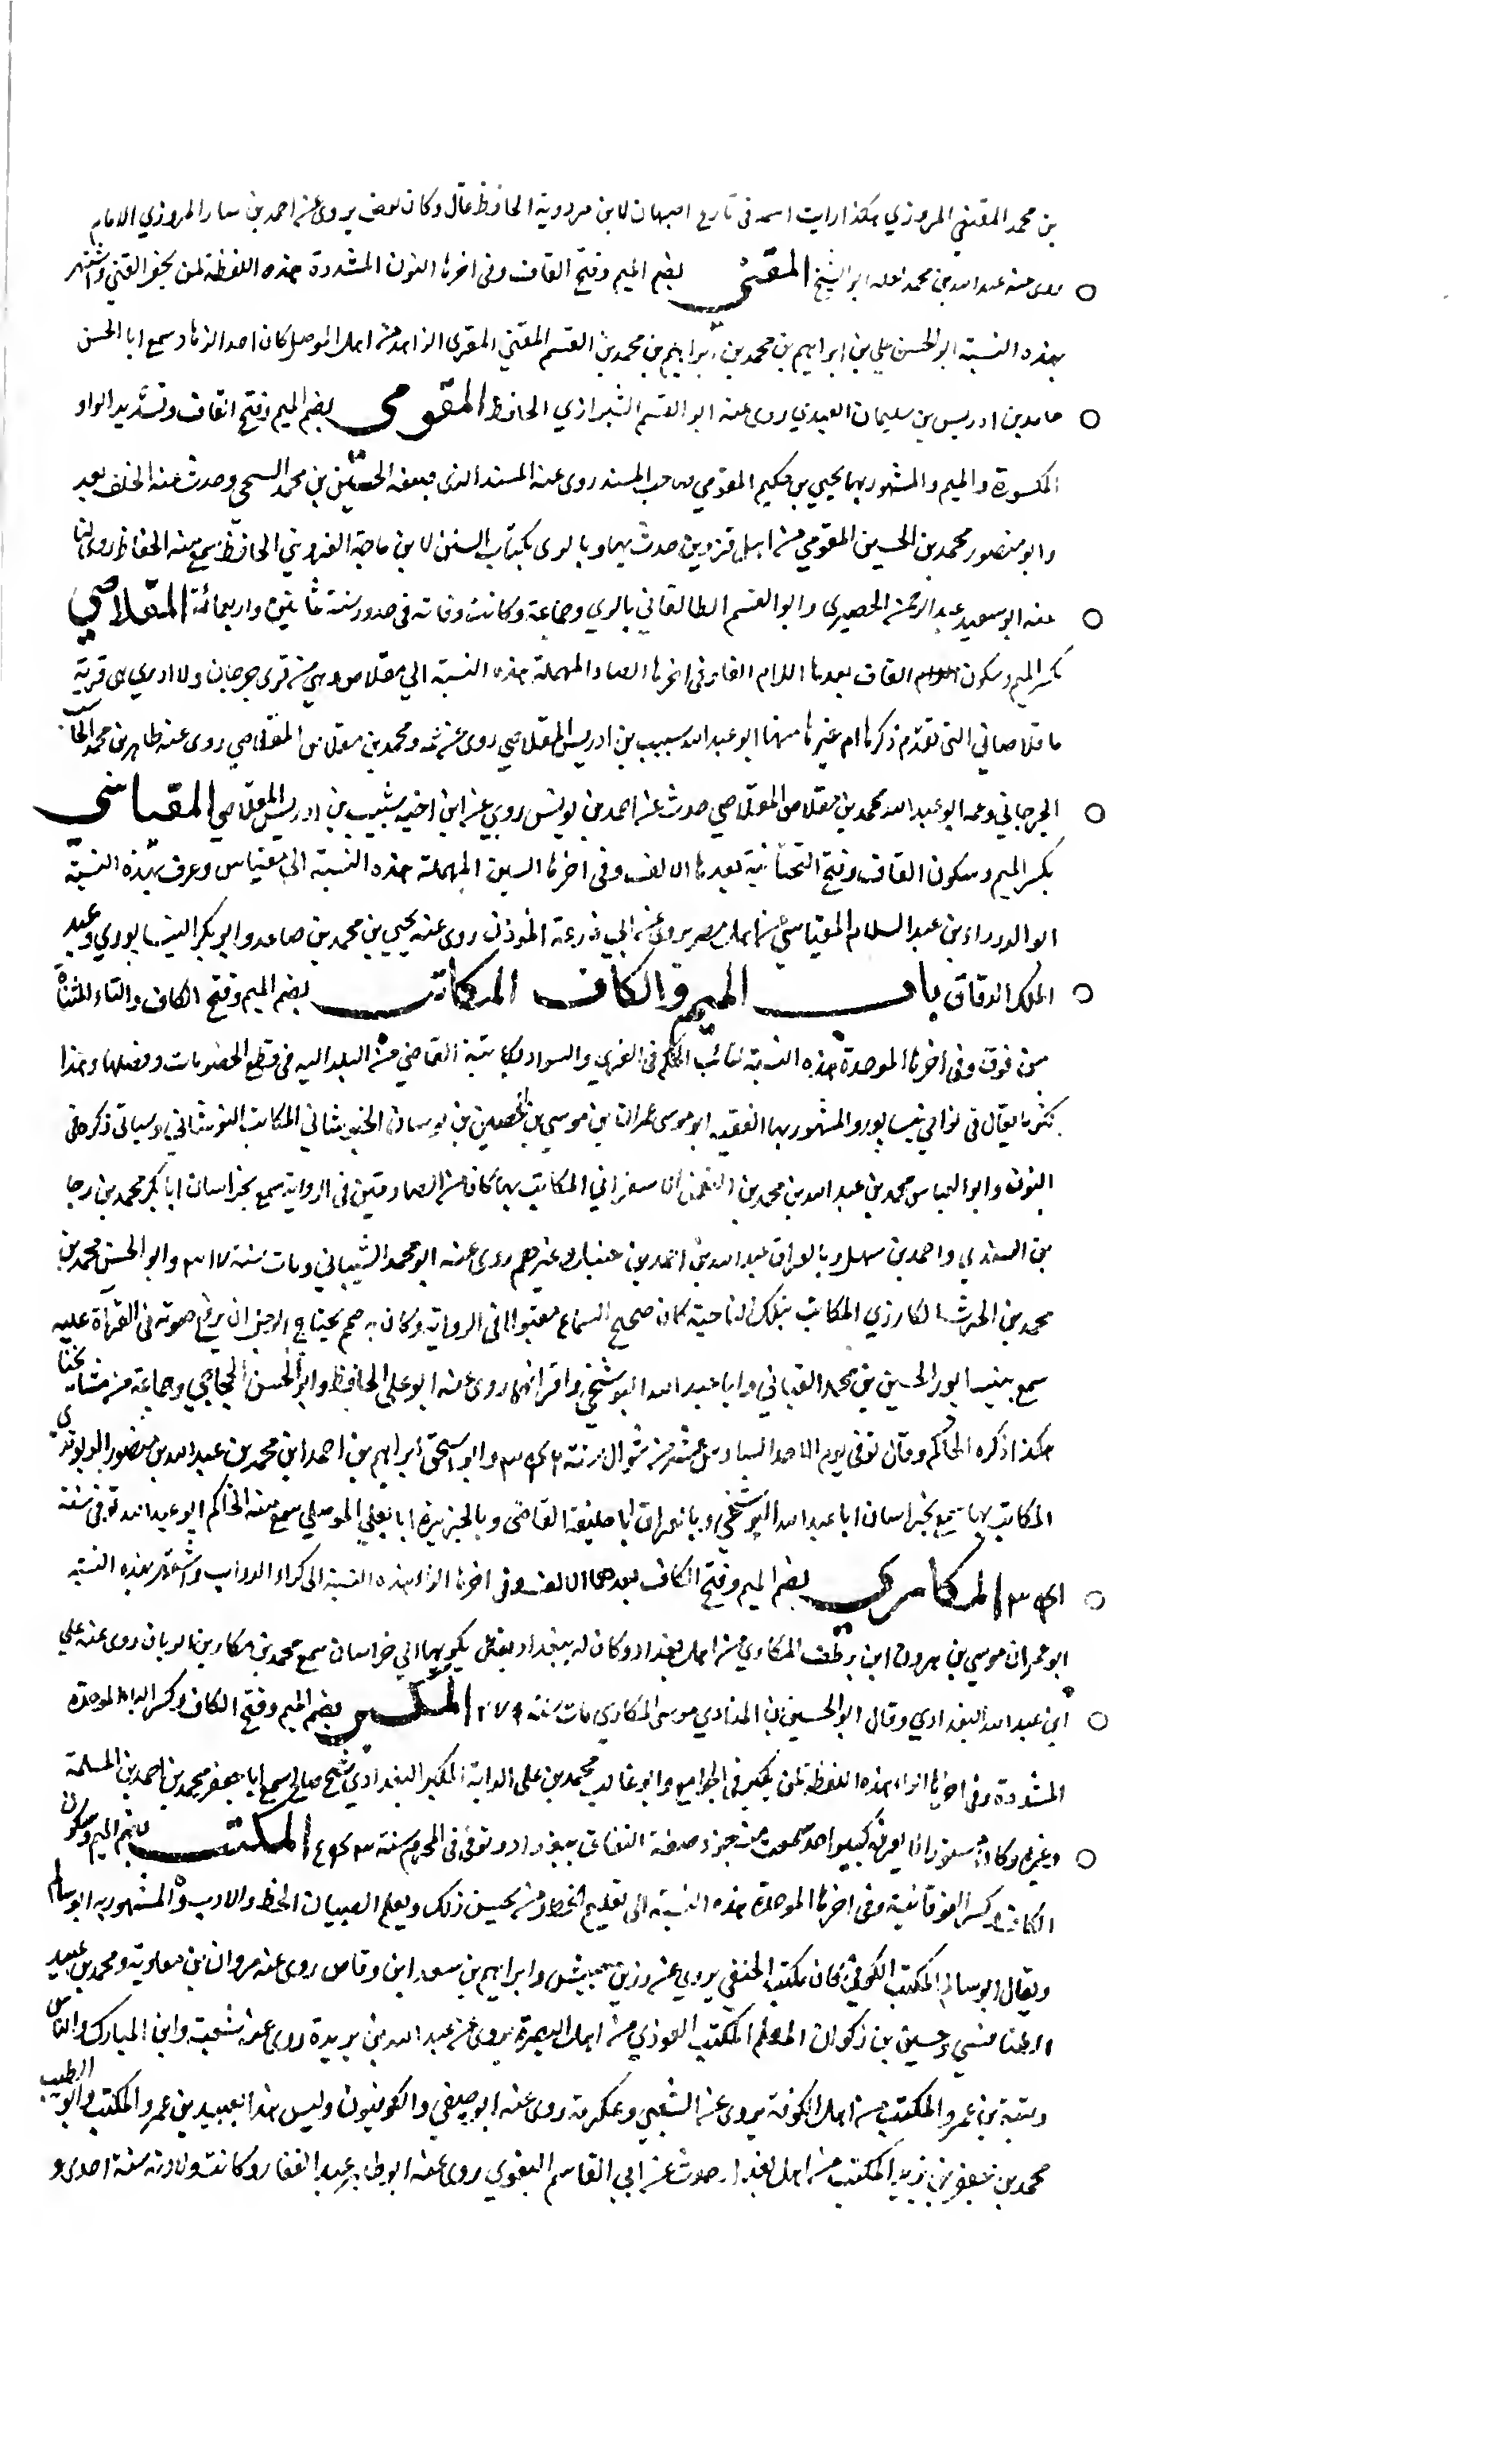 بن محمد المقنعي المروزي هكذا رايت اسمه في تاريخ اصبهان لابن مردوية الحافظ قال وكان يروى عنه احمد بن سيار المروزي الامام
روى عنه عبد الله بن محمد ابو الشيخ المقنّي بضم الميم وفتح القاف وفي اخرها النون المشددة هذه اللفظة لمن يحفر القني واشتهر
بهذه النسبة ابو الحسن علي بن ابراهيم بن محمد بن ابراهيم بن محمد بن القسم المقني المقرى الزاهد من اهل الموصل كان احد الزهاد سمع ابا الحسن
حامد بن ادريس بن سليمان العبدي روى عنه ابو القسم الشيرازي الحافظ المقوّمي بضم الميم وفتح القاف وتشديد الواو
المكسورة والميم والمشهور بها يحيي بن حكيم المقومي صاحب المسند روى عنه المسند الذى صنفه الحسين بن محمد السحى وحدث عنه الخلف بعد
وابو منصور محمد بن الحسين المقومي من اهل قزوين حدث بها وبالرى بكتاب السنن لابن ماجة القزويني الحافظ سمع منه الحفاظ روى لنا
عنه ابو سعيد عبد الرحمن الحصيرى وابو القسم الطالقاني بالري وجماعة وكانت وفاته في حدود سنة ثمانين واربعمائة المقلاصي
بكسر الميم وسكون القاف بعدها اللام الف وفي اخرها الصاد المهملة هذه النسبة الي مقلاص وهي من قرى جرجان ولا ادري هى قرية
ماقلاصاني التى تقدم ذكرها ام غيرها منها ابو عبد الله شبيب بن ادريس المقلاصي روى عن عمه محمد بن مقلاص المقلاصي روى عنه طاهر بن محمد
الجرجاني وعمه ابو عبد الله محمد بن مقلاص المقلاصي حدث عن احمد بن يونس روي عنه ابن اخيه شبيب بن ادريس المقلاصي المقياسي
بكسر الميم وسكون القاف وفتح التحتانية بعدها الالف وفي اخرها السين المهملة هذه النسبة الي مقياس وعرف بهذه النسبة
ابو الرداد بن عبد السلام المقياسي من اهل مصر يروى عن ابي زرعة المؤذن روى عنه يحيي بن محمد بن صاعد وابو بكر النيسابوري وعبد
الملك الدقاق باب الميم والكاف المكاتب بضم الميم وفتح الكاف والتاء المثناة
من فوق وفي اخرها الموحدة هذه النسبة لنائب الحكم في القرى والسواد لمكاتبة القاضي من البلد اليه في قطع الخصومات وفصلها وهذا
كثر ما يقال في نواحي نيسابور والمشهور بها الفقيه ابو موسى عمران بن موسي بن الحصين بن نوسان الخبوشاني المكاتب النوشاني وسياتى ذكره في
النون وابو العباس محمد بن عبد الله بن محمد بن الاسفرايني المكاتب بها كان من الصادقين في الرواية سمع بخراسان ابا بكر محمد بن رجا
بن السندي واحمد بن سهل وبالعراق عبد الله بن احمد بن حنبل وغيرهم روى عنه ابو محمد الشيباني ومات سنة ٣١٧ وابو الحسن محمد بن
محمد بن الحرث الكارزي المكاتب بتلك الناحية كان صحيح السماع مقبولا في الرواية وكان به صمم يحتاج الرجل ان يرفع صوته في القرآة عليه
سمع بنيسابور الحسين بن محمد القباني وابا عبد الله البوشنجي واقرانهما روى عنه ابو علي الحافظ وابو الحسن الحجاجي وجماعة من مشايخنا
هكذا ذكره الحاكم وقال توفى يوم الاحد السادس عشر من شوال سنة وابو اسحق ابراهيم بن احمد ابن محمد بن عبد الله بن منصور
المكاتب بها سمع بخراسان ابا عبد الله البوشنجي وبالعراق ابا خليفة القاضى وبالجزيرة ابا يعلي الموصلي سمع منه الحاكم ابو عبد الله توفى سنة
المكاري بضم الميم وفتح الكاف بعدهما الالف وفي اخرها الراء هذه النسبة الى كراء الدواب واشتهر بهذه النسبة
ابو عمران موسي بن هرون ابن برطق المكاري من اهل بغداد وكان له ببغداد بغال يكريها الي خراسان سمع محمد بن بكار بن الريان روى عنه علي
ابن عبد الله البغدادي وقال ابو الحسين بن المنادي موسى المكاري مات سنة ٢٧٩ المكبر بضم الميم وفتح الكاف وكسر الباء الموحدة
المشددة وفي اخرها الراء هذه اللفظة لمن يكبر في الجوامع وابو غالب محمد بن على الداية المكبر البغدادي شيخ صالح سمع ابا جعفر محمد بن احمد بن المسلمة
وغيره وكان مستورا سمعت منه جزء صفة النفاق ببغداد وتوفى في المحرم سنة المكتب بضم الميم وسكون
الكاف وكسر الفوقانية وفي اخرها الموحدة هذه النسبة الى تعليم الخط ومن يحسن ذلك ويعلم الصبيان الخط والادب والمشهور به ابو سالم
ويقال ابو سالم المكتب الكوفي كان مكتب الحنفي يروي عن زر بن حبيش وابراهيم بن سعد ابن وقاص روى عنه مروان بن معاوية ومحمد بن عبيد
الطنافسي وحسين بن ذكوان المعلم المكتب العوذي من اهل البصرة يروى عن عبد الله بن بريدة روى عنه شعبة وابن المبارك والناس
بن عمرو المكتب من اهل الكوفة يروى عن الشعبي وعكرمة روى عنه والكوفيون وليس هذا بعبيد بن عمرو المكتب وابو الطيب
محمد بن جعفر بن زيد المكتب من اهل بغداد حدث عن ابي القاسم البغوي روى عنه ابو طاهر عبد الغفار وكانت ولادته سنة احدى و